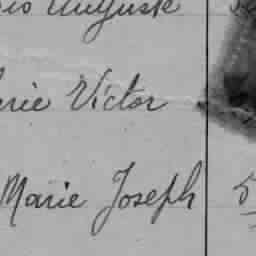 Auguste
Victor
Marie Joseph 5